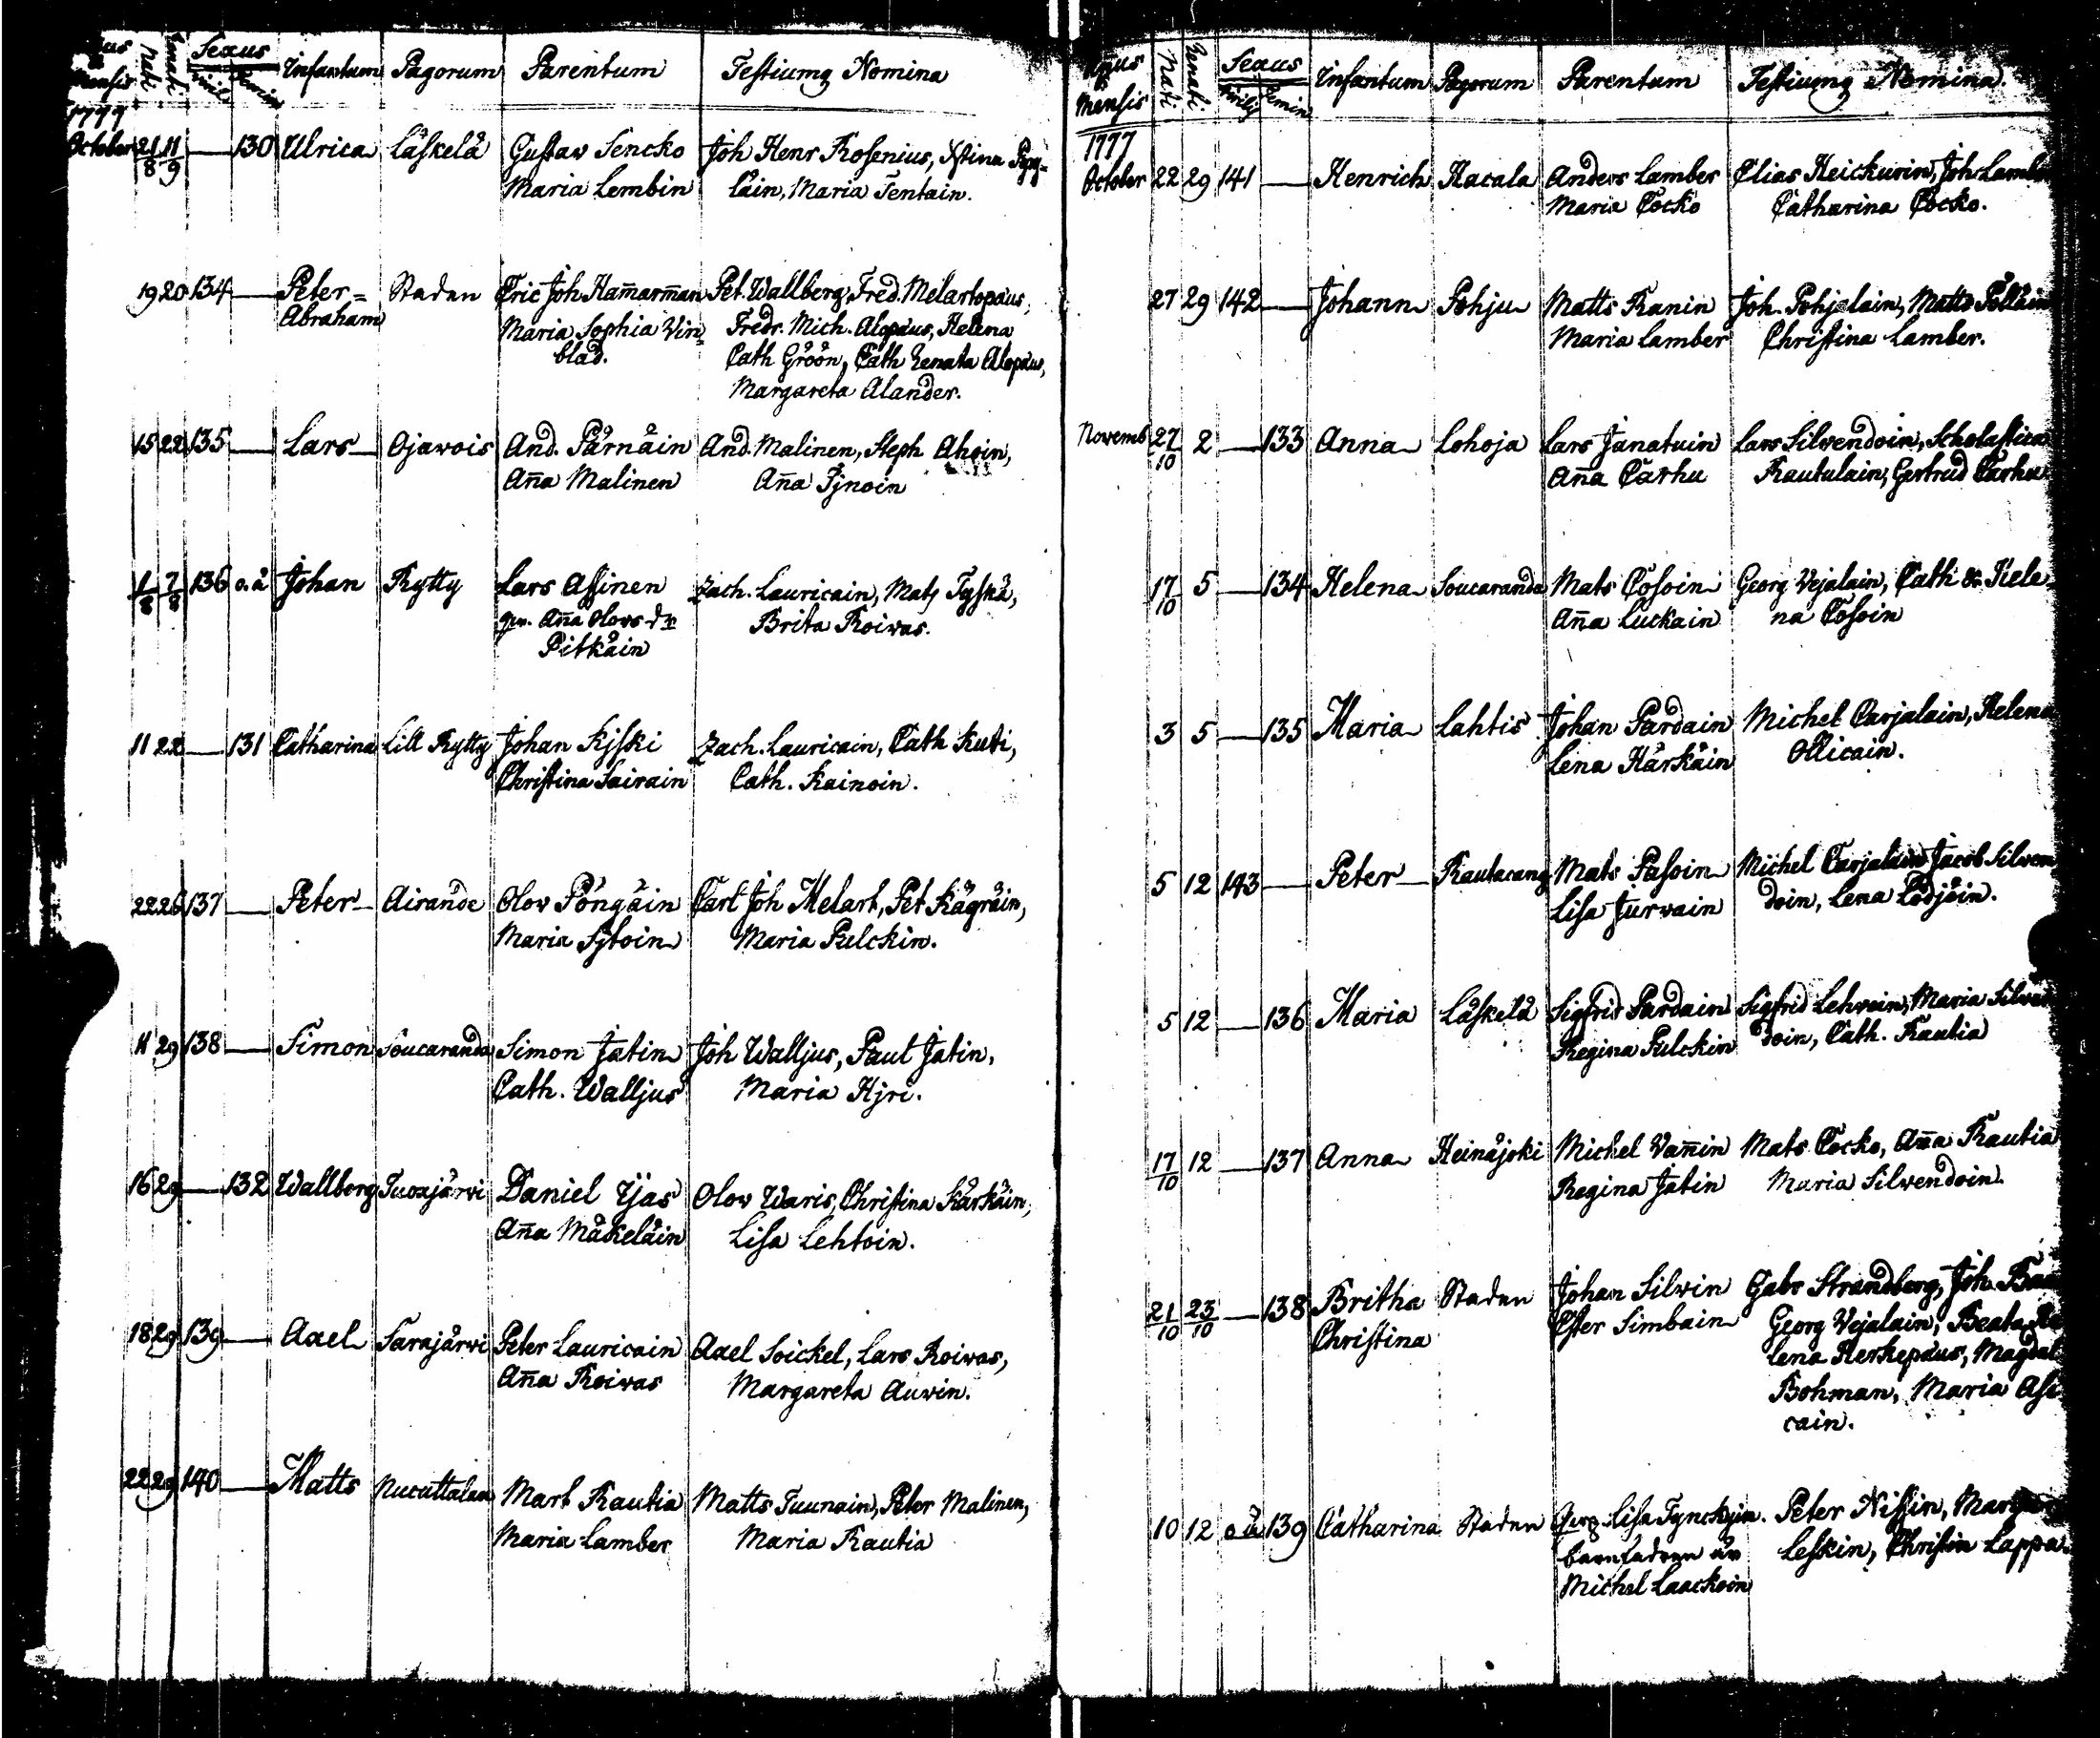 mensis Nati Renati Sexus Infantum Pagorum Parentum Testiumq Nomina
Virilis Femin
1777
October 21/8 11/9 — 130 Ulrica Läskelä Gustav Sencko Joh Henr Rosenius, Xstina
Maria Lembin läin, Maria Tentain.
19 20 134 — Peter= Staden Eric Joh Ham̄arman Pet. Wallberg, Fred. Melartopæus,
Abraham Maria Sophia Vin= Fredr. Mich. Alopæus, Helena
blad. Cath Gröön, Cath Renata Alopæus,
Margareta Alander.
15 22 135 — Lars Ojawois And. Pärnäin And. Malinen, Steph Ahoin,
An̄a Malinen An̄a Ijnoin
1/8 7/8 136 o.ä Johan Rytty Lars Assinen Zach. Lauricain, Mats Tyskä,
qv. An̄a Olovs dr Brita Roivas.
Pitkäin
11 22 — 131 Catharina Lill Rytty Johan Kjski Zach. Lauricain, Cath Kuti,
Christina Sairain Cath. Kainoin.
22 26 137 — Peter Airande Olov Pöngäin Carl Joh Melart, Pet Kägräin,
Maria Sjtoin Maria Pulckin.
11 29 138 — Simon Soucaranda Simon Jatin Joh Walljus, Paul Jatin,
Cath. Walljus Maria Hjri.
16 29 — 132 Wallborg Tuoxjärvi Daniel Ijas Olov Waris, Christina Kärkäin,
An̄a Mäkeläin Lisa Lehtoin.
18 29 139 — Axel Sarajärwi Peter Lauricain Axel Soickel, Lars Roivas,
An̄a Roivas Margareta Auvin.
22 29 140 — Matts Nucuttalax Mart Rautia Matts Tuunain, Peter Malinen,
Maria Lamber Maria Rautia
mensis Nati Renati Sexus Infantum Pagorum Parentum Testiumq Nomina.
Virilis Femin
1777
October 22 29 141 — Henrich Hacala Anders Lamber Elias Heickurin, Joh Lamber
Maria Cocko Catharina Cocko.
27 29 142 — Johann Pohju Matts Ranin Joh. Pohjolain, Matts Pölläin
Maria Lamber Christina Lamber.
Novemb 27/10 2 — 133 Anna Lohoja Lars Janatuin Lars Silvendoin, Scholastica
An̄a Carhu Rautulain, Gertrud Carhu
17/10 5 — 134 Helena Soucaranda Mats Cosoin Georg Vejalain, Cath & Hele
An̄a Luckain na Cosoin
3 5 — 135 Maria Lahtis Johan Pardain Michel Carjalain, Helena
Lena Härkäin Ollicain.
5 12 143 — Peter Rautacang Mats Pasoin Michel Carjalain Jacob Silven
Lisa Jurvain doin, Lena Lödjöin.
5 12 — 136 Maria Läskelä Sigfrid Pardain Sigfrid Lehvain, Maria Silven
Regina Pulckin doin, Cath. Rautia
17/10 12 — 137 Anna Heinäjoki Michel Van̄in Mats Cocko, An̄a Rautia
Regina Jatin Maria Silvendoin.
21/10 23/10 — 138 Britha Staden Johan Silvin Gabr Strandberg, Joh.
Christina Ester Simbain Georg Vejalain, Beata
lena Herkepæus, Magdal
Bohman, Maria Asi
cain.
10 12 o.ä 139 Catharina Staden Lisa Tynckyin. Peter Nissin, Marg
barnfadren är Leskin, Christin Lappa.
Michel Laackoin